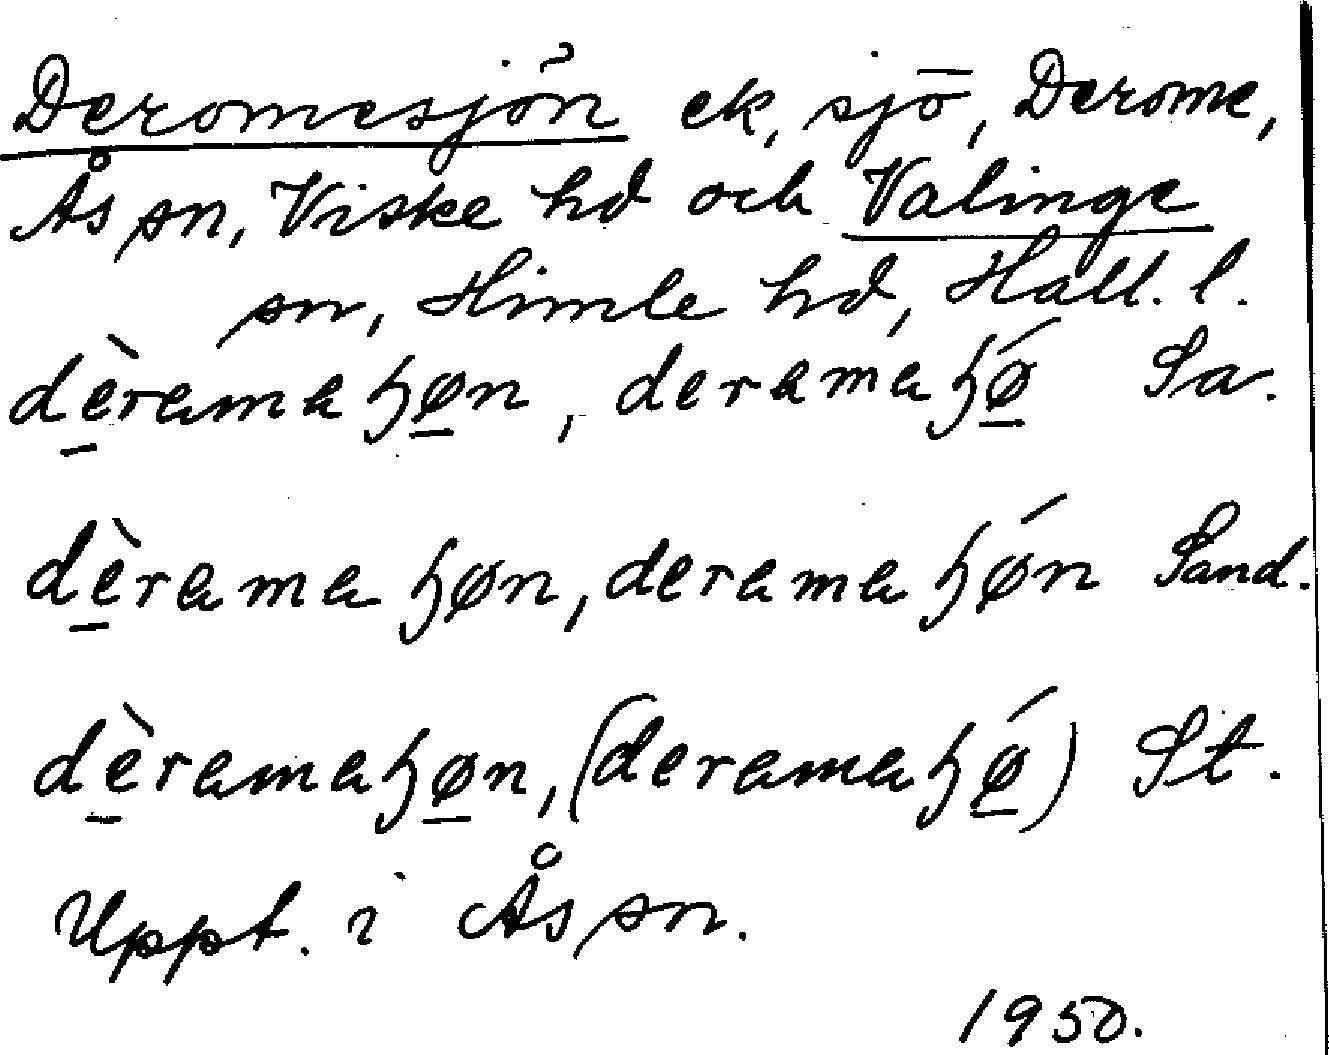 Deromesjön ek, sjö, Derome,
Ås sn, Viske hd och Valinge
sn, Himle hd, Hall. l.
dèramaɧøn, deramaɧǿ Sa.
dèramaɧøn, deramaɧǿn Sand.
dèramaɧøn, (deramaɧǿ) St.
Uppt. i Ås sn.
1950.